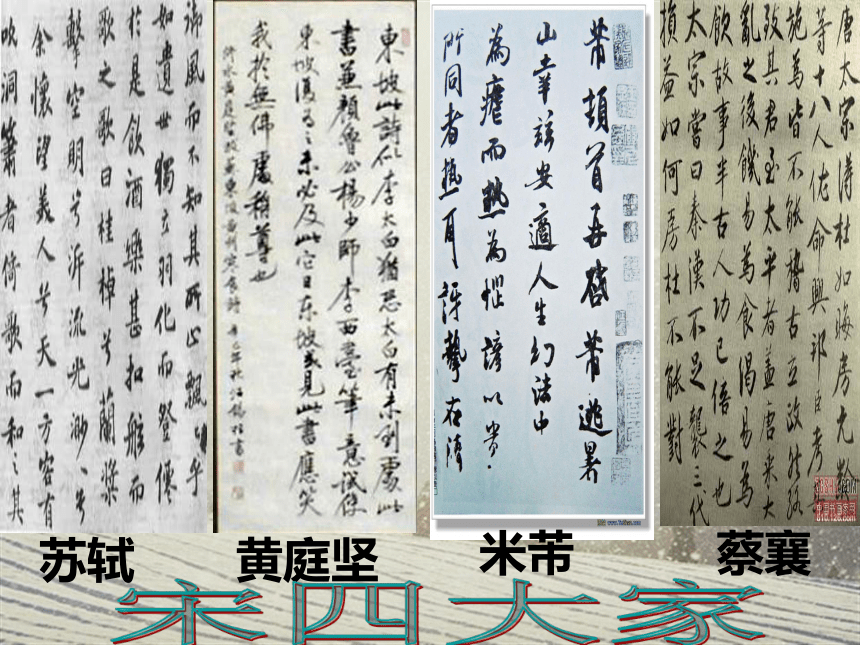 御風而不知其所止飄〻乎
如遺世獨立羽化而登僊
於是飲酒樂甚扣舷而
歌之歌曰桂棹兮蘭槳
擊空明兮泝流光渺〻兮
余懷望美人兮天一方客有
吹洞簫者倚歌而和之其
東坡此詩似李太白猶恐太白有未到處此
書兼顏魯公楊少師李西臺筆意試使
東坡復為之未必及此它日东坡或見此書應笑
我於無佛處稱尊也
芾頓首再啓芾逃暑
山幸茲安適人生幻法中
為瘧而熱為惱諺以貴
所同者熱耳訝挈在清
唐太宗得杜如晦房元齡
等十八人佐命興邦臣考
施為皆不能稽古立政
致其君至太平者蓋唐承大
亂之後饑易為食渴易為
飲故事半古人功已倍之也
太宗嘗曰秦漢不足襲三代
損益如何房杜不能對
苏轼
黄庭坚
米芾
蔡襄
宋四大家